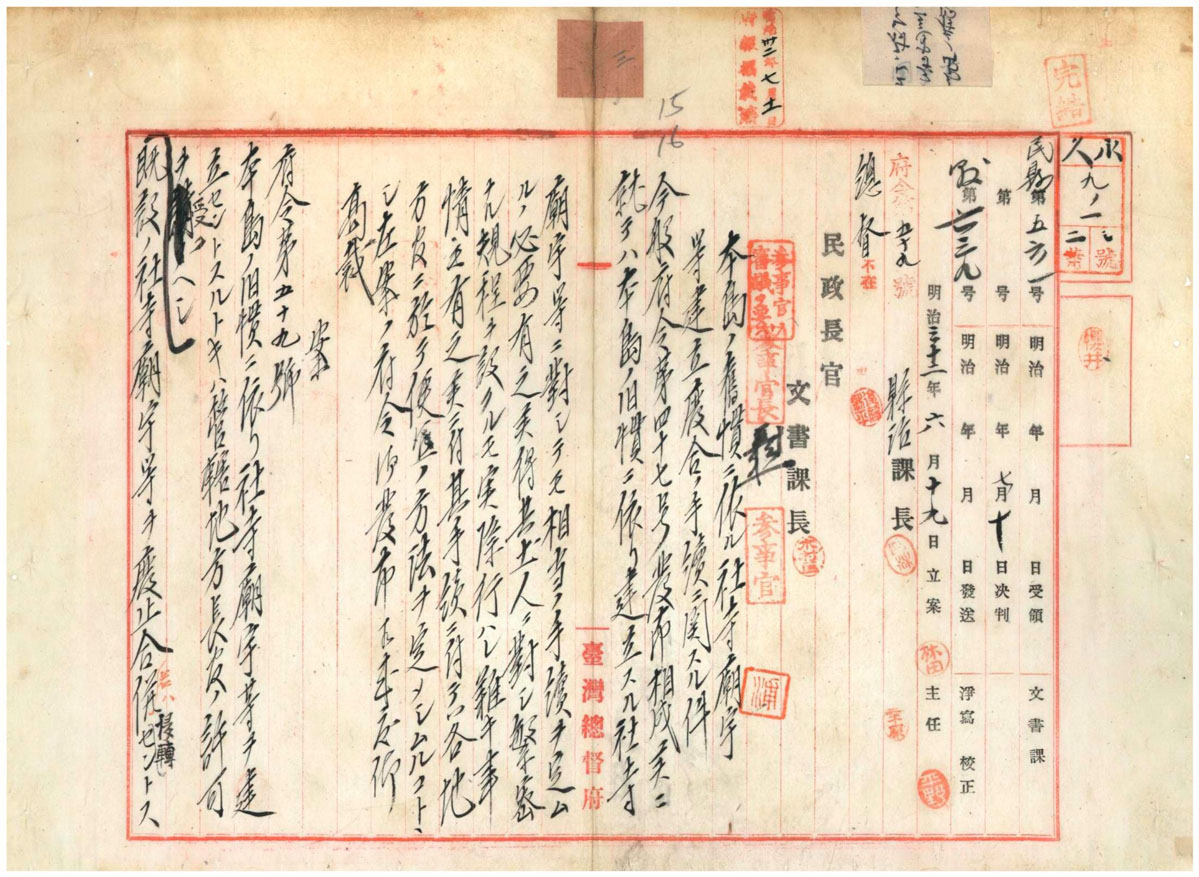 完結
永久
九ノ一
二號
二葉
明治卅二年七月十一日
府報揭載濟
三
15
16
民縣第五六一号 明治 年 月 日受領 文書課
第 号 明治 年七月十日決判
第六三九号 明治 年 月 日發送 淨寫 校正
明治三十二年六月十九日立案 主任
府令五十九號
總督不在
縣治課長
民政長官
文書課長
參事官長
參事官
本島ノ舊慣ニ依ル社寺廟宇
等建立廢合ノ手續ニ関スル件
今般府令第四十七号發布相成候ニ
就テハ本島ノ旧慣ニ依リ建立スル社寺
廟宇等ニ對シテモ相当ノ手續ヲ定ム
ルノ必要有之候得共土人ニ對シ繁密
ナル規程ヲ設クルモ実際行ハレ難キ事
情モ有之候ニ付其手續ニ付テハ各地
方官ニ於テ便宜ノ方法ヲ定メシムルコトヽ
シ左案ノ府令御發布可相成哉仰
高裁
案
府令第五十九號
本島ノ旧慣ニ依リ社寺廟宇等ヲ建
立セントスルトキハ管轄地方長官ノ許可
ヲ受クヘシ
既設ノ社寺廟宇等ヲ廢止合併セントス
若ハ移轉
臺灣總督府